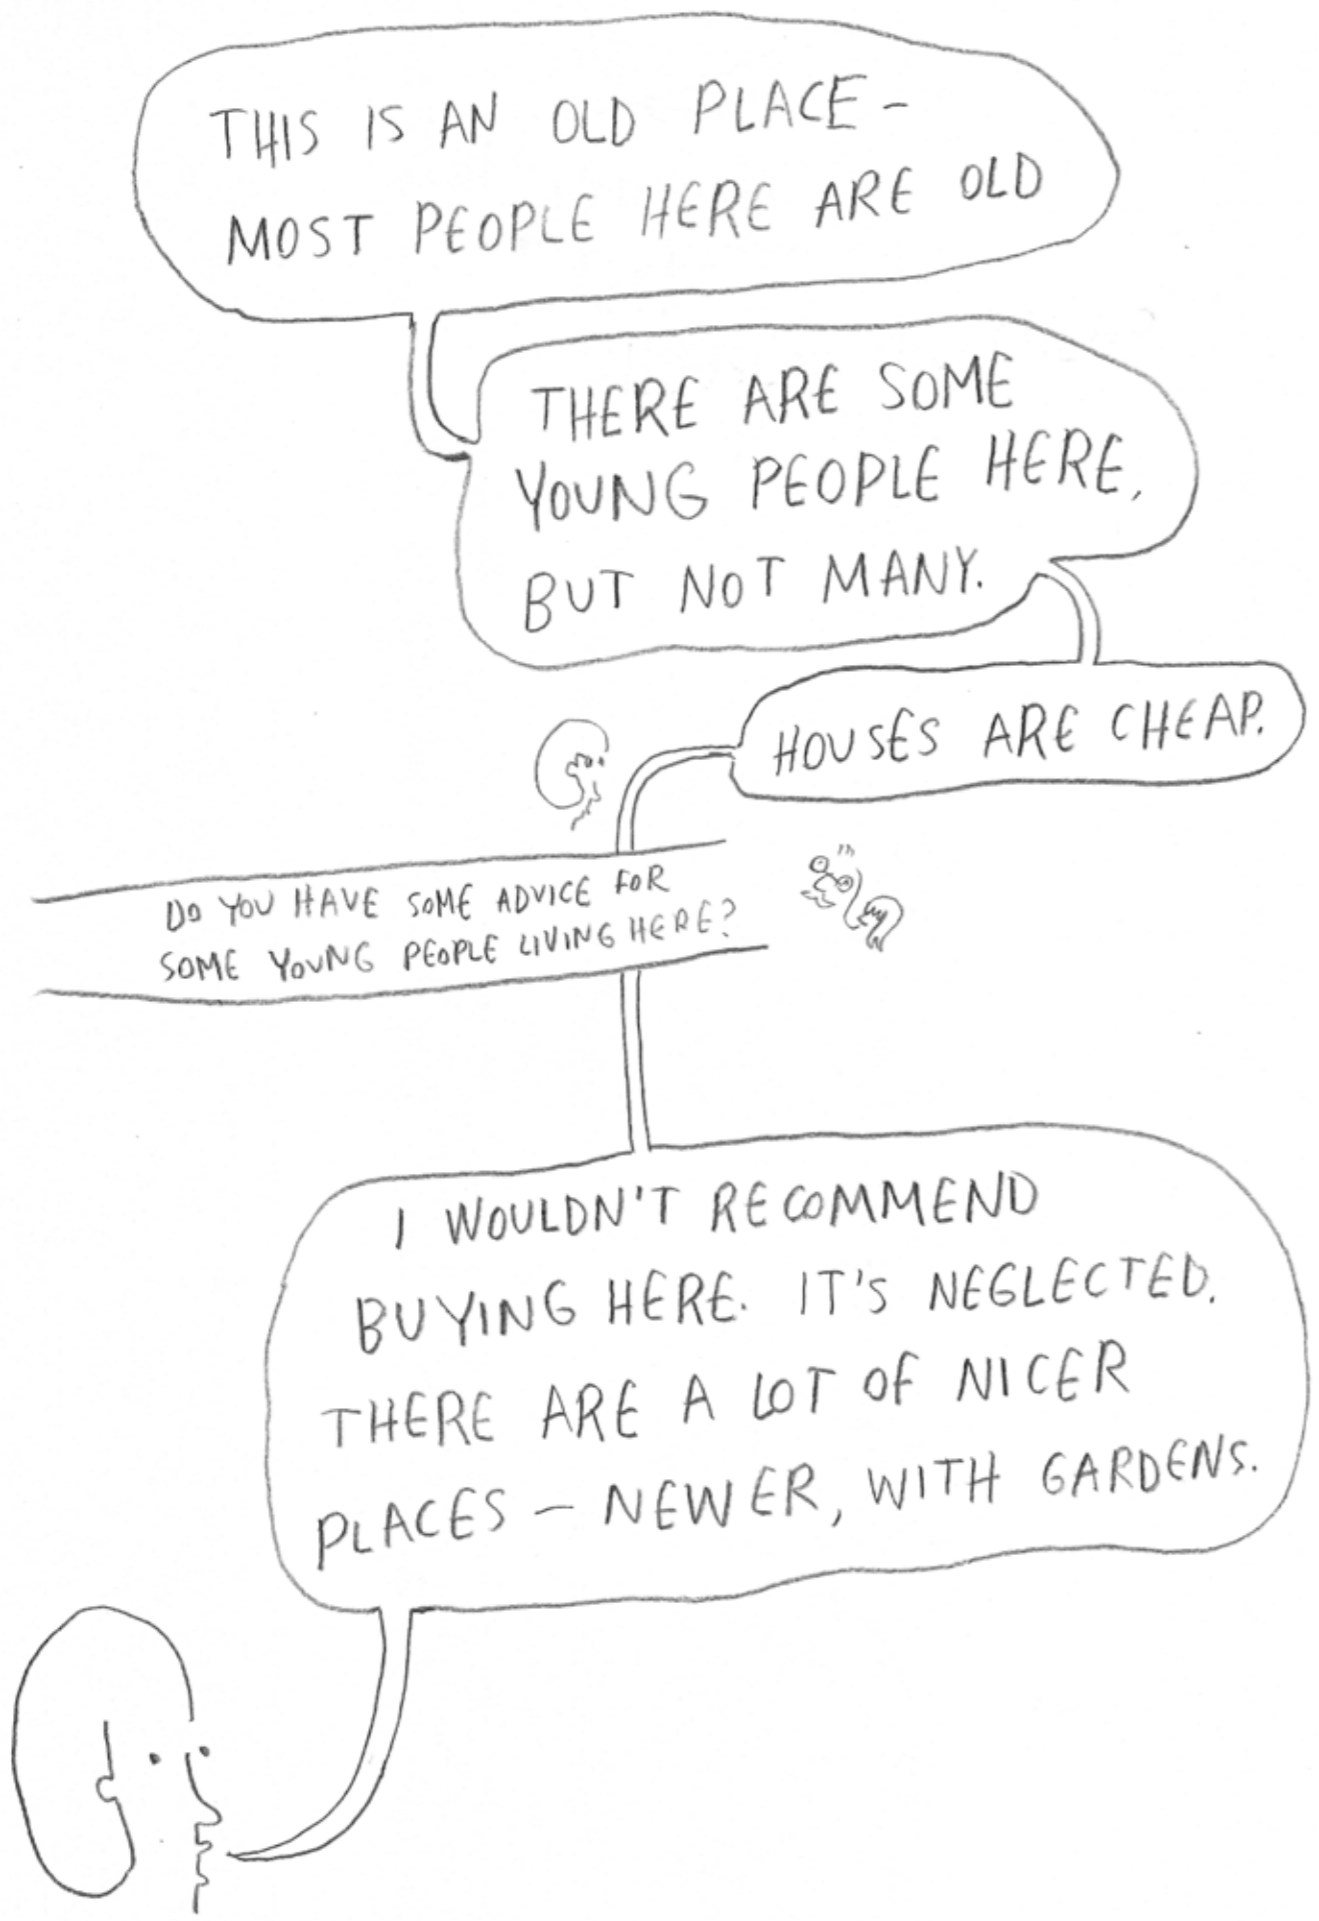 THIS IS AN OLD PLACE -
MOST PEOPLE HERE ARE OLD
THERE ARE SOME
YOUNG PEOPLE HERE,
BUT NOT MANY.
HOUSES ARE CHEAP.
DO YOU HAVE SOME ADVICE FOR
SOME YOUNG PEOPLE LIVING HERE?
I WOULDN'T RECOMMEND
BUYING HERE. IT'S NEGLECTED.
THERE ARE A LOT OF NICER
PLACES - NEWER, WITH GARDENS.